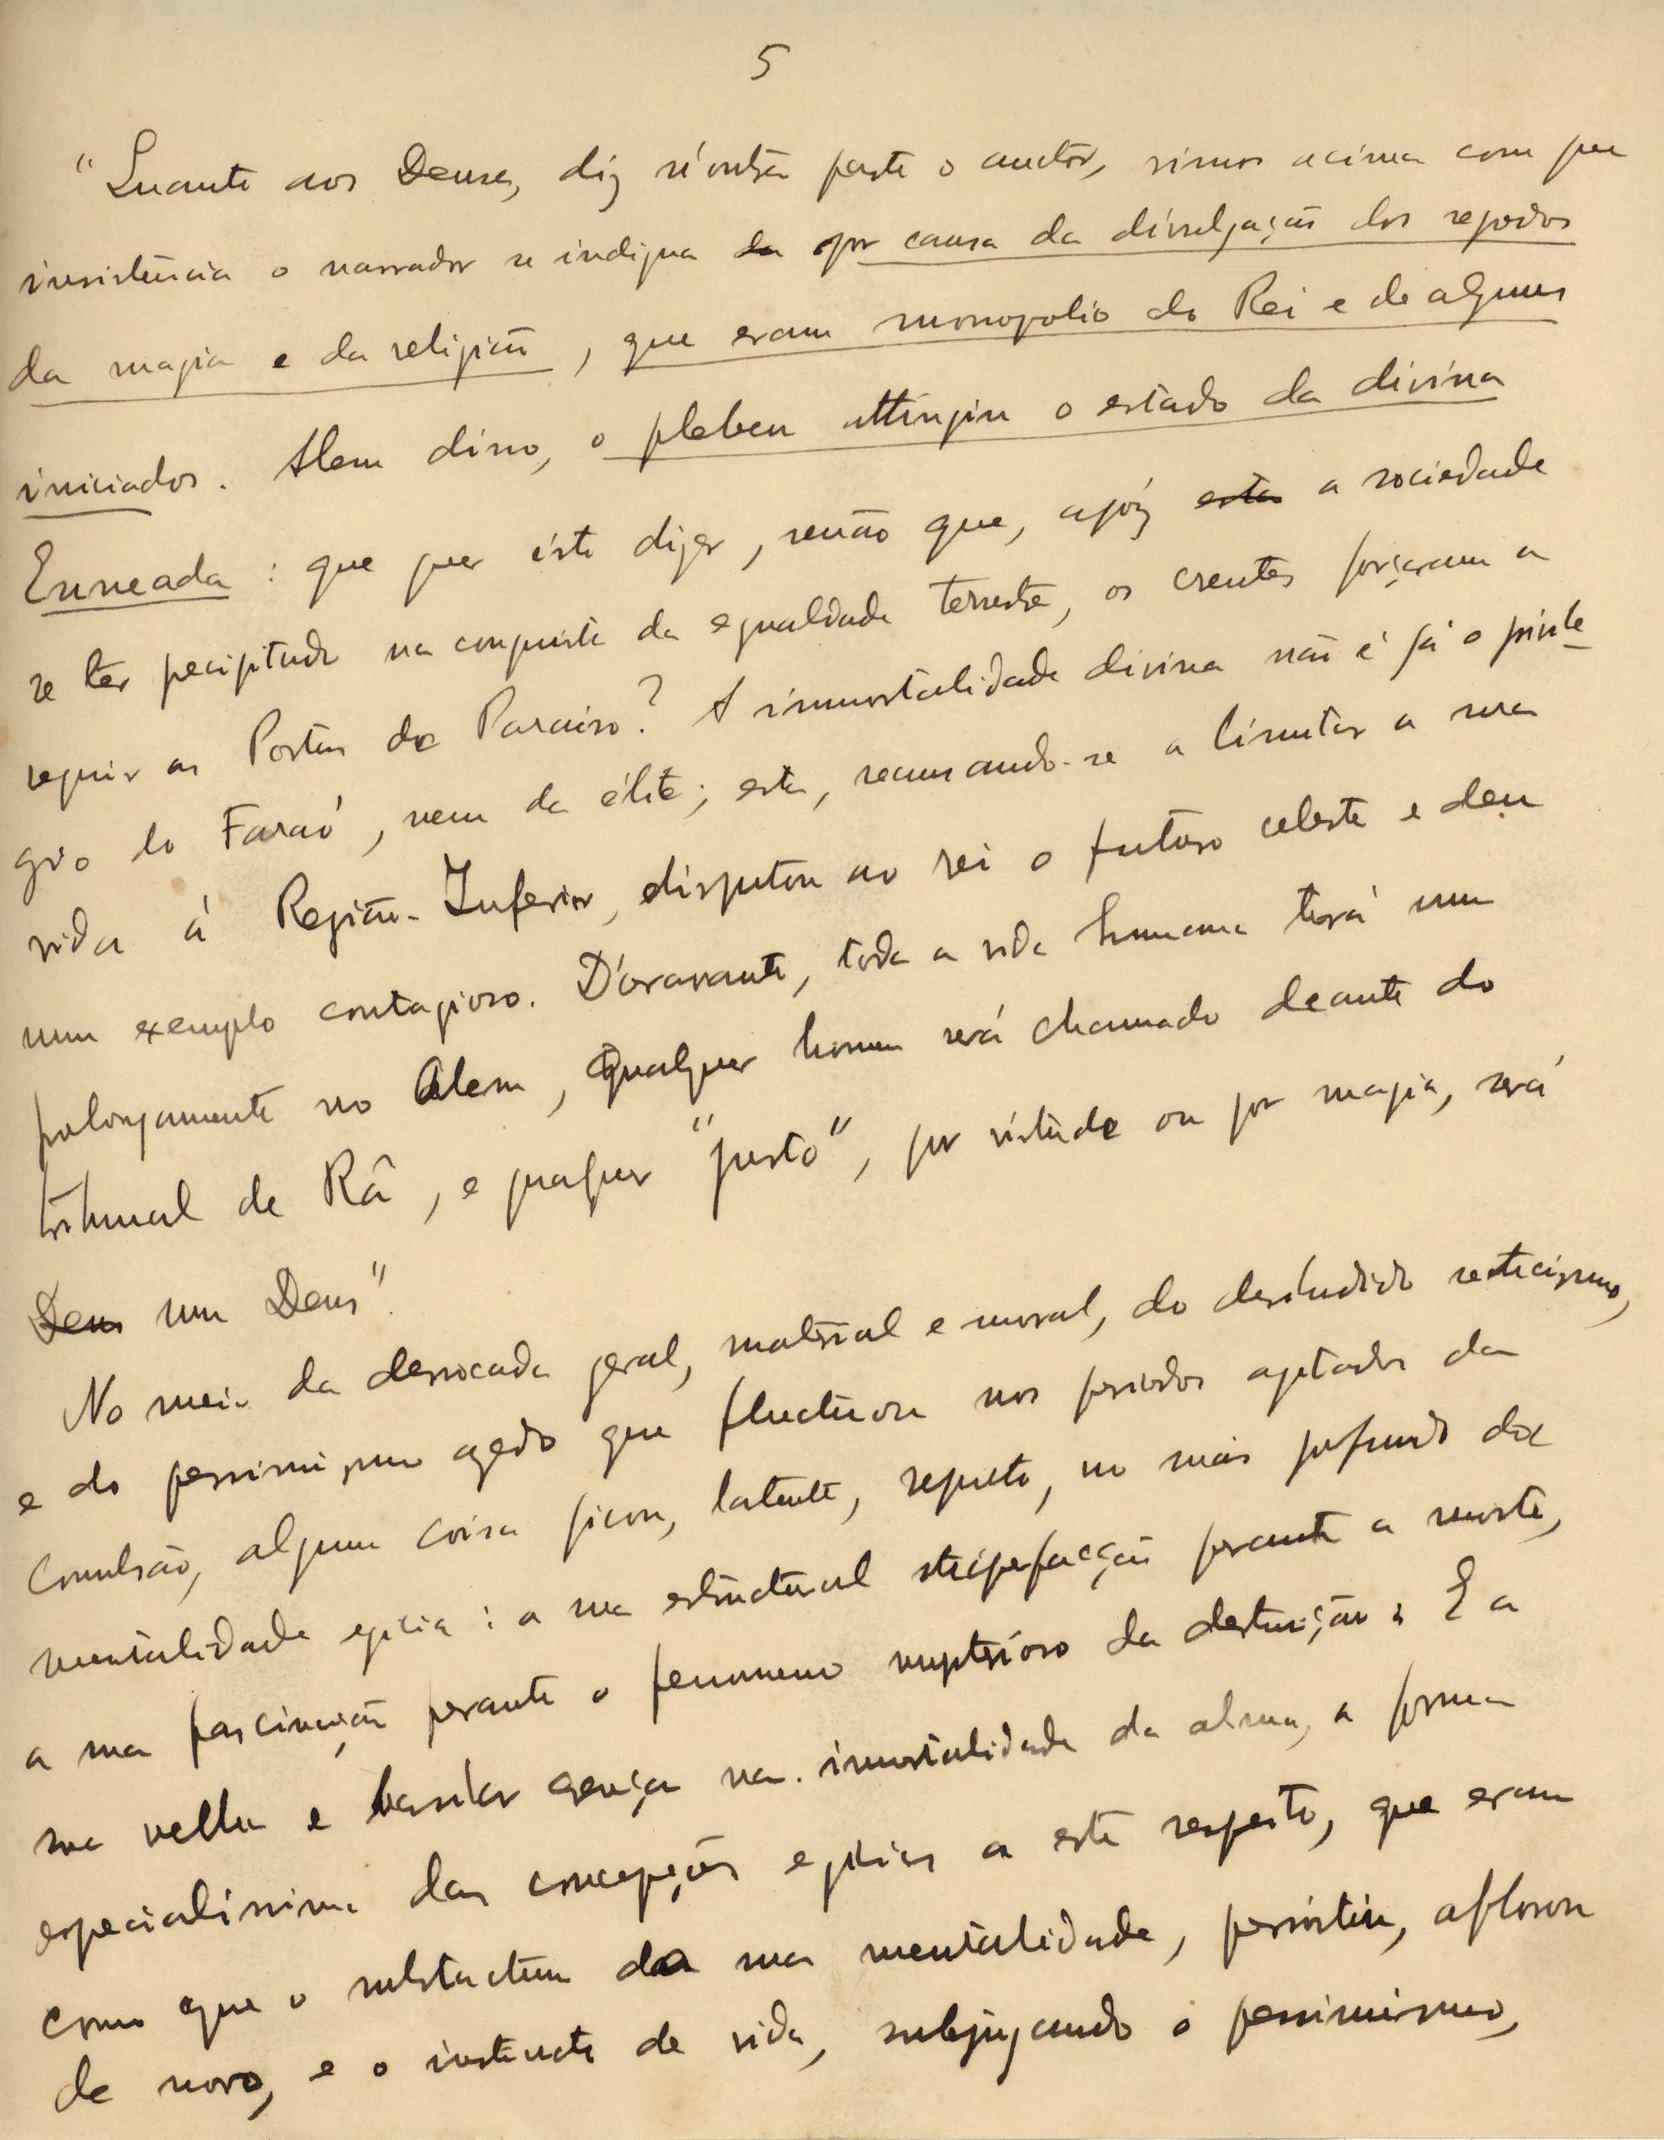 5
"Quanto aos Deuses, diz n'outra parte o auctor, vimos acima com que
insistência o narrador se indigna da por causa da divulgação dos segredos
da magia e da religião, que eram monopolio do Rei e de alguns
iniciados. Alem disso, o plebeu attingiu o estado da divina
Enneada: que quer isto dizer, senão que, após esta a sociedade
se ter precipitado na conquista da egualdade terrestre, os crentes forçaram a
seguir as Portas do Paraiso? A immortalidade divina não é já o privile-
gio do Faraó, nem da élite; esta, recusando-se a limitar a sua
vida á Região-Inferior, disputou ao rei o futuro celeste e deu
um exemplo contagioso. D'oravante, toda a vida humana terá um
prolongamento no Alem, Qualquer homem será chamado deante do
tribunal de Râ, e qualquer "justo", por virtude ou por magia, será
Deus um Deus".
No meio da derrocada geral, material e moral, do desiludido scepticismo,
e do pessimismo azedo que fluctuou nos periodos agitados da
Convulsão, alguma coisa ficou, latente, repleto, no mais profundo da
mentalidade egipcia: a sua estructural stupefacção perante a morte,
a sua fascinação perante o fenomeno mysterioso da destruição; E a
sua velha e basilar crença na imortalidade da alma, a forma
especialissima das concepções egipcias a este respeito, que eram
como que o substractum da sua mentalidade, persistiu, aflorou
de novo, e o instincto de vida, subjugando o pessimismo,